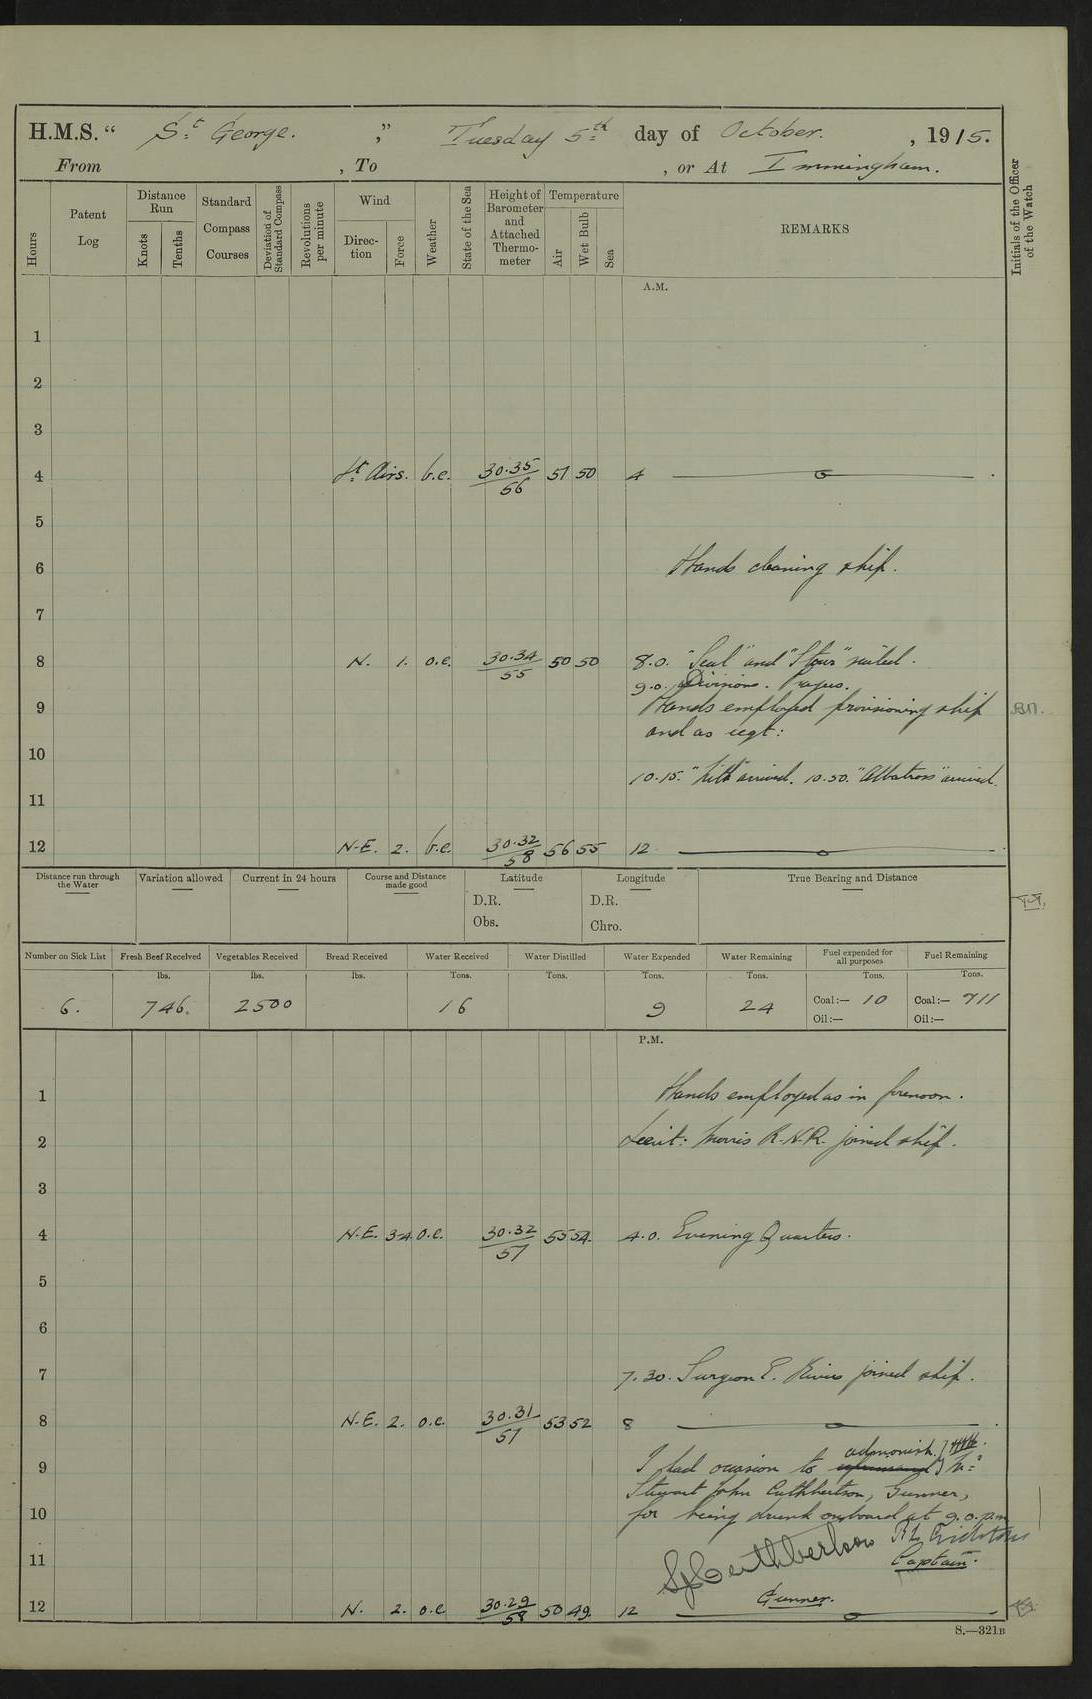 H.M.S. “ St. George. ” Tuesday 5th day of October. , 1915.
From , To , or At Immingham.
Hours
Patent Log
Distance Run
Knots
Tenths
Standard Compass Courses
Deviation of Standard Compass
Revolutions per minute
Wind
Direction
Force
Weather
State of the Sea
Height of Barometer and Attached Thermometer
Temperature
Air
Wet Bulb
Sea
REMARKS
Initials of the Officer of the Watch
A.M.
1
2
3
4 Lt. Airs. b.c. 30.35/56 51 50 4 .
5
6 Hands cleaning ship.
7
8 N. 1. o.c. 30.34/55 50 50 8.0. "Seal" and "Stour" sailed.
9.0. Divisions. Prayers.
9 Hands employed provisioning ship
and as reqt:
10
10.15. arrived. 10.50. "Albatross" arrived.
11
12 N.E. 2. b.c. 30.32/58 56 55 12
Distance run through the Water
Variation allowed
Current in 24 hours
Course and Distance made good
Latitude
D.R.
Obs.
Longitude
D.R.
Chro.
True Bearing and Distance
Number on Sick List
Fresh Beef Received
Vegetables Received
Bread Received
Water Received
Water Distilled
Water Expended
Water Remaining
Fuel expended for all purposes
Fuel Remaining
lbs. lbs. lbs. Tons. Tons. Tons. Tons. Tons. Tons.
6. 746. 2500 16 9 24 Coal:— 10 Coal:— 711
Oil:— Oil:—
P.M.
1 Hands employed as in forenoon.
2 Lieut: Morris R.N.R. joined ship.
3
4 N.E. 3-4 o.c. 30.32/57 55 54. 4.0. Evening Quarters.
5
6
7 7.30. Surgeon E. joined ship.
8 N.E. 2. o.c. 30.31/57 53 52 8
admonish
9 I had occasion to reprimand Mr.
Stewart John Cuthbertson, Gunner,
10 for being drunk onboard at 9.0. p.m.
11 SJCuthbertson
Captain.
Gunner.
12 N. 2. o.c. 30.29/58 50 49. 12
S.—321B